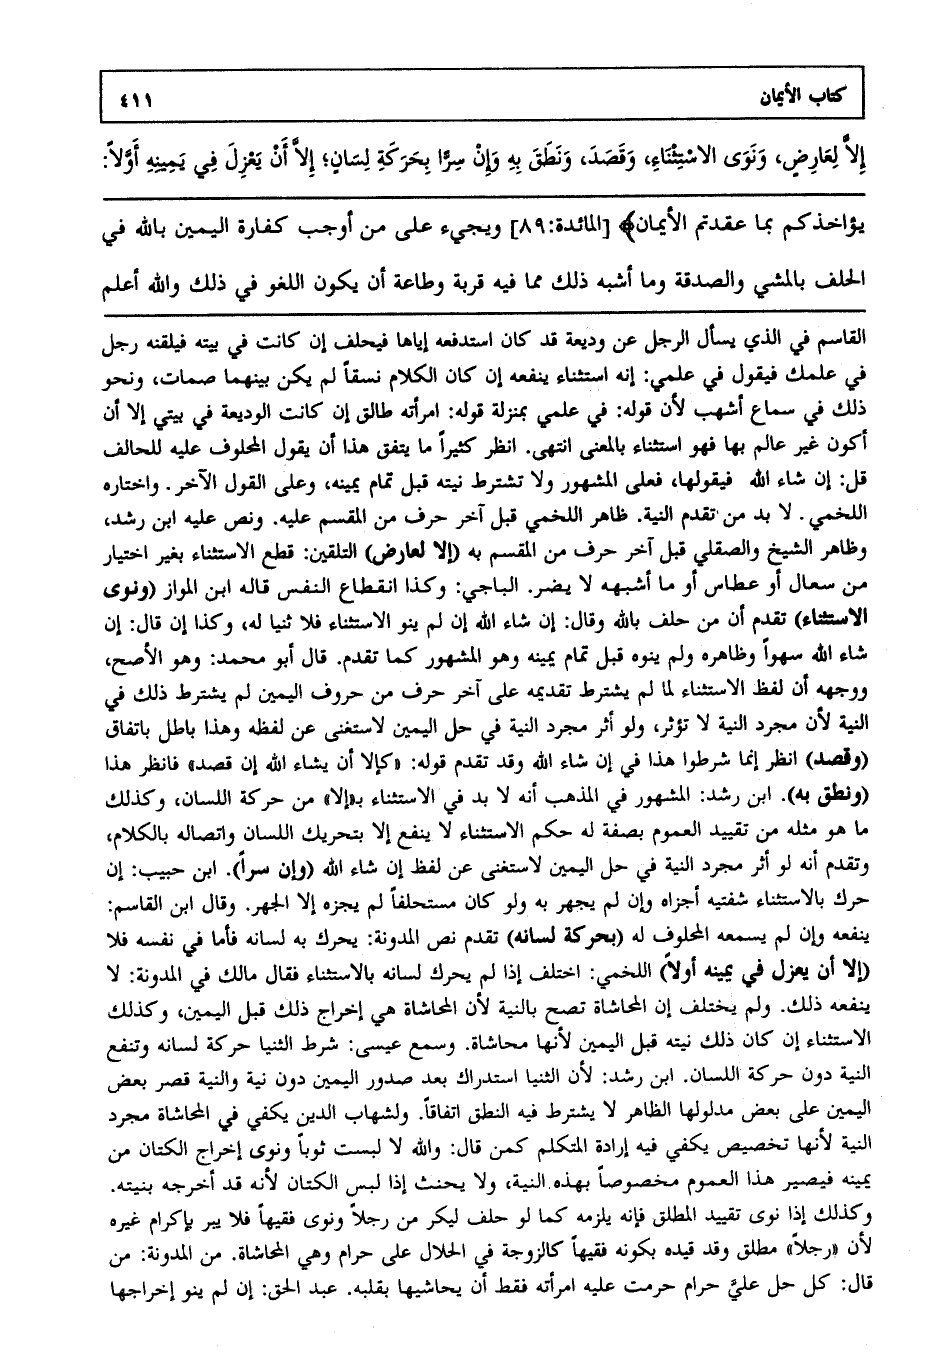 كتاب الأيمان ٤١١
إِلاَّ لِعَارِضٍ، وَنَوَى الاسْتِثْنَاءِ، وَقَصَدَ، وَنَطَقَ بِهِ وَإِنْ سِرًّا بِحَرَكَةِ لِسَانٍ؛ إِلاَّ أَنْ يَعْزِلَ فِي يَمِينِهِ أَوَّلاً:
يؤاخذكم بما عقدتم الأيمان﴾ [المائدة:٨٩] ويجيء على من أوجب كفارة اليمين بالله في
الحلف بالمشي والصدقة وما أشبه ذلك مما فيه قربة وطاعة أن يكون اللغو في ذلك والله أعلم
القاسم في الذي يسأل الرجل عن وديعة قد كان استدفعه إياها فيحلف إن كانت في بيته فيلقنه رجل
في علمك فيقول في علمي: إنه استثناء ينفعه إن كان الكلام نسقاً لم يكن بينهما صمات، ونحو
ذلك في سماع أشهب لأن قوله: في علمي بمنزلة قوله: امرأته طالق إن كانت الوديعة في بيتي إلا أن
أكون غير عالم بها فهو استثناء بالمعنى انتهى. انظر كثيراً ما يتفق هذا أن يقول المحلوف عليه للحالف
قل: إن شاء الله فيقولها، فعلى المشهور ولا تشترط نيته قبل تمام يمينه، وعلى القول الآخر. واختاره
اللخمي. لا بد من تقدم النية. ظاهر اللخمي قبل آخر حرف من المقسم عليه. ونص عليه ابن رشد،
وظاهر الشيخ والصقلي قبل آخر حرف من المقسم به (إلا لعارض) التلقين: قطع الاستثناء بغير اختيار
من سعال أو عطاس أو ما أشبهه لا يضر. الباجي: وكذا انقطاع النفس قاله ابن المواز (ونوى
الاستثناء) تقدم أن من حلف بالله وقال: إن شاء الله إن لم ينو الاستثناء فلا ثنيا له، وكذا إن قال: إن
شاء الله سهواً وظاهره ولم ينوه قبل تمام يمينه وهو المشهور كما تقدم. قال أبو محمد: وهو الأصح،
ووجهه أن لفظ الاستثناء لما لم يشترط تقديمه على آخر حرف من حروف اليمين لم يشترط ذلك في
النية لأن مجرد النية لا تؤثر، ولو أثر مجرد النية في حل اليمين لاستغنى عن لفظه وهذا باطل باتفاق
(وقصد) انظر إنما شرطوا هذا في إن شاء الله وقد تقدم قوله: «كإلا أن يشاء الله إن قصد» فانظر هذا
(ونطق به). ابن رشد: المشهور في المذهب أنه لا بد في الاستثناء بـ«إلا» من حركة اللسان، وكذلك
ما هو مثله من تقييد العموم بصفة له حكم الاستثناء لا ينفع إلا بتحريك اللسان واتصاله بالكلام،
وتقدم أنه لو أثر مجرد النية في حل اليمين لاستغنى عن لفظ إن شاء الله (وإن سراً). ابن حبيب: إن
حرك بالاستثناء شفتيه أجزاه وإن لم يجهر به ولو كان مستحلفاً لم يجزه إلا الجهر. وقال ابن القاسم:
ينفعه وإن لم يسمعه المحلوف له (بحركة لسانه) تقدم نص المدونة: يحرك به لسانه فأما في نفسه فلا
(إلا أن يعزل في يمينه أولاً) اللخمي: اختلف إذا لم يحرك لسانه بالاستثناء فقال مالك في المدونة: لا
ينفعه ذلك. ولم يختلف إن المحاشاة تصح بالنية لأن المحاشاة هي إخراج ذلك قبل اليمين، وكذلك
الاستثناء إن كان ذلك نيته قبل اليمين لأنها محاشاة. وسمع عيسى: شرط الثنيا حركة لسانه وتنفع
النية دون حركة اللسان. ابن رشد: لأن الثنيا استدراك بعد صدور اليمين دون نية والنية قصر بعض
اليمين على بعض مدلولها الظاهر لا يشترط فيه النطق اتفاقاً. ولشهاب الدين يكفي في المحاشاة مجرد
النية لأنها تخصيص يكفي فيه إرادة المتكلم كمن قال: والله لا لبست ثوباً ونوى إخراج الكتان من
يمينه فيصير هذا العموم مخصوصاً بهذه النية، ولا يحنث إذا لبس الكتان لأنه قد أخرجه بنيته.
وكذلك إذا نوى تقييد المطلق فإنه يلزمه كما لو حلف ليكر من رجلاً ونوى فقيهاً فلا يبر بإكرام غيره
لأن «رجلاً» مطلق وقد قيده بكونه فقيهاً كالزوجة في الحلال على حرام وهي المحاشاة. من المدونة: من
قال: كل حل عليَّ حرام حرمت عليه امرأته فقط أن يحاشيها بقلبه. عبد الحق: إن لم ينو إخراجها